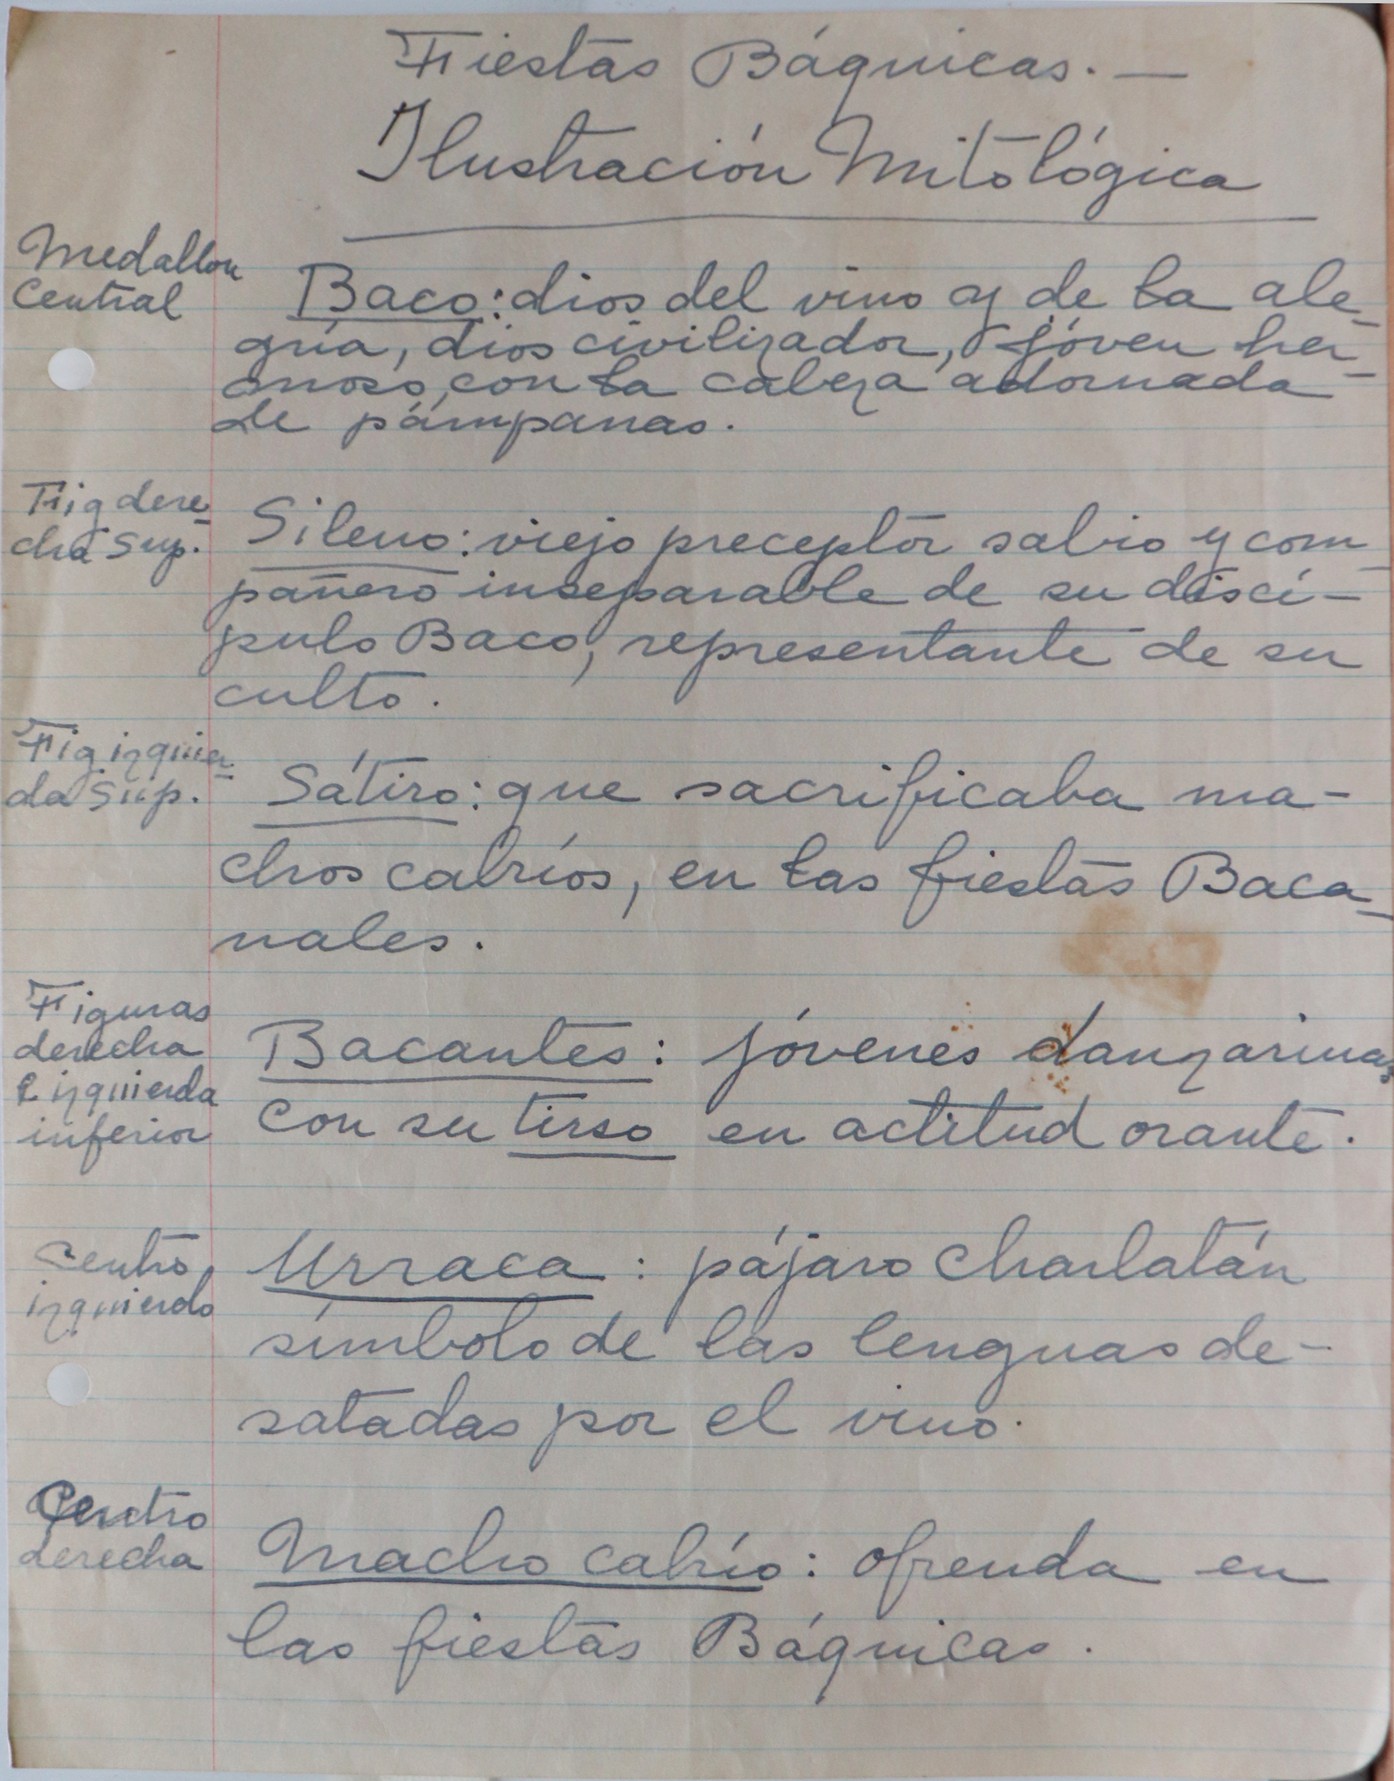 Fiestas Báquicas.—
Ilustración Mitológica
Medallon
Central
Baco: dios del vino y de la ale-
gría, dios civilizador, jóven her-
moso, con la cabeza adornada
de pámpanas.
Fig dere-
cha Sup.
Sileno: viejo preceptor sabio y com-
pañero inseparable de su discí-
pulo Baco, representante de su
culto.
Fig izquier-
da Sup.
Sátiro: que sacrificaba ma-
chos cabríos, en las fiestas Baca-
nales.
Figuras
derecha
e izquierda
inferior
Bacantes: jóvenes danzarinas
con su tirso en actitud orante.
Centro
izquierdo
Urraca: pájaro charlatán
símbolo de las lenguas de-
satadas por el vino.
Centro
derecha
Macho cabrío: ofrenda en
las fiestas Báquicas.